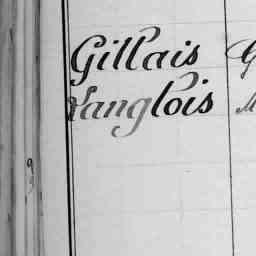 Gillais
Langlois